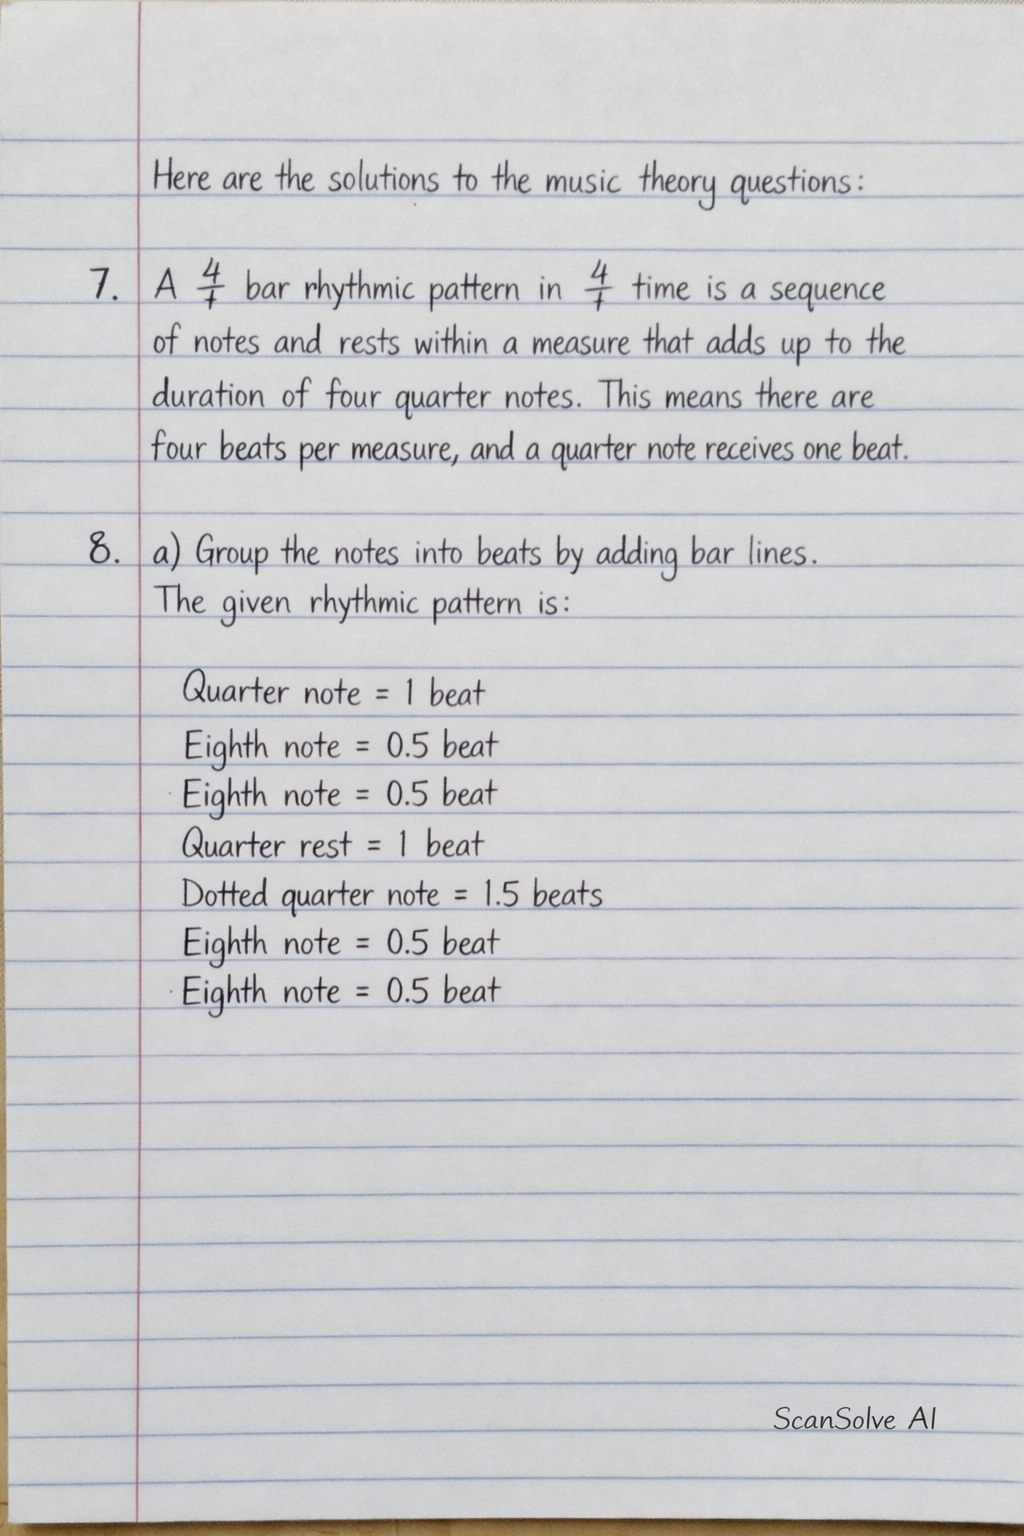 Here are the solutions to the music theory questions:
7. A 4/4 bar rhythmic pattern in 4/4 time is a sequence
of notes and rests within a measure that adds up to the
duration of four quarter notes. This means there are
four beats per measure, and a quarter note receives one beat.
8. a) Group the notes into beats by adding bar lines.
The given rhythmic pattern is:
Quarter note = 1 beat
Eighth note = 0.5 beat
Eighth note = 0.5 beat
Quarter rest = 1 beat
Dotted quarter note = 1.5 beats
Eighth note = 0.5 beat
Eighth note = 0.5 beat
ScanSolve AI